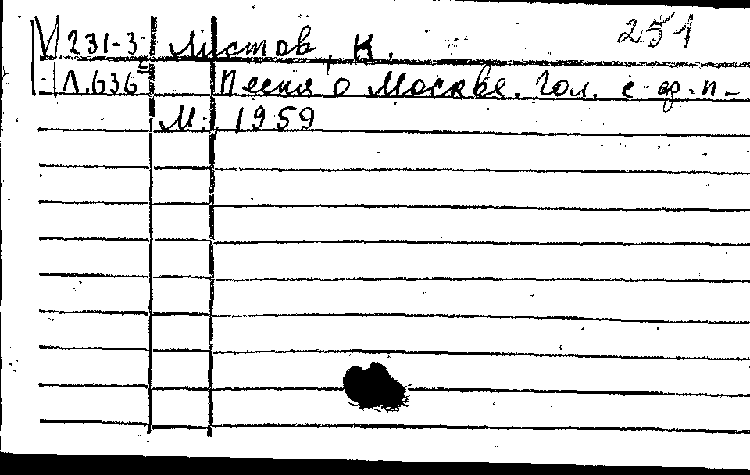 251
V 231-3 Листов, К.
Л.636 Песня о Москве. Гол. с ф.п.
М. 1959